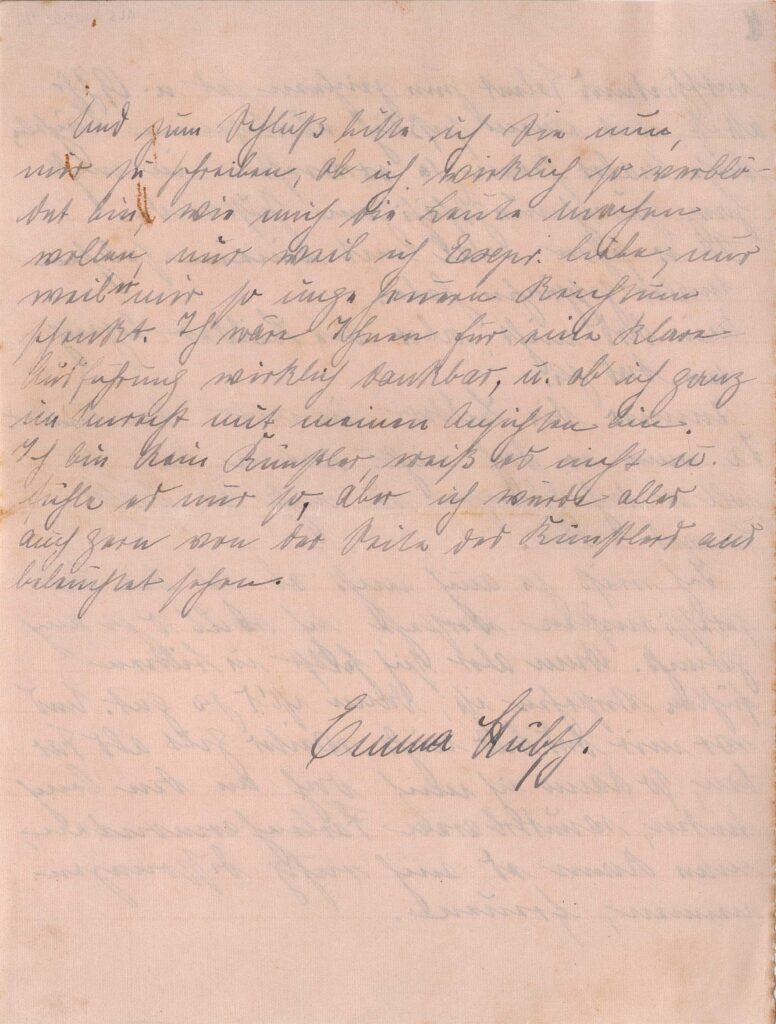 Und zum Schluß bitte ich Sie nun,
mir zu schreiben, ob ich wirklich so verblö-
det bin, wie mich die Leute machen
wollen, nur weil ich Expr. liebe, nur
weil er mir so ungeheuern Reichtum
schenkt. Ich wäre Ihnen für eine klare
Ausführung wirklich dankbar, u. ob ich ganz
im Unrecht mit meinen Ansichten bin.
Ich bin kein Künstler, weiß es nicht u.
fühle es nur so, aber ich würde alles
auch gern von der Seite des Künstlers aus
beleuchtet sehen.
Emma Hübsch.